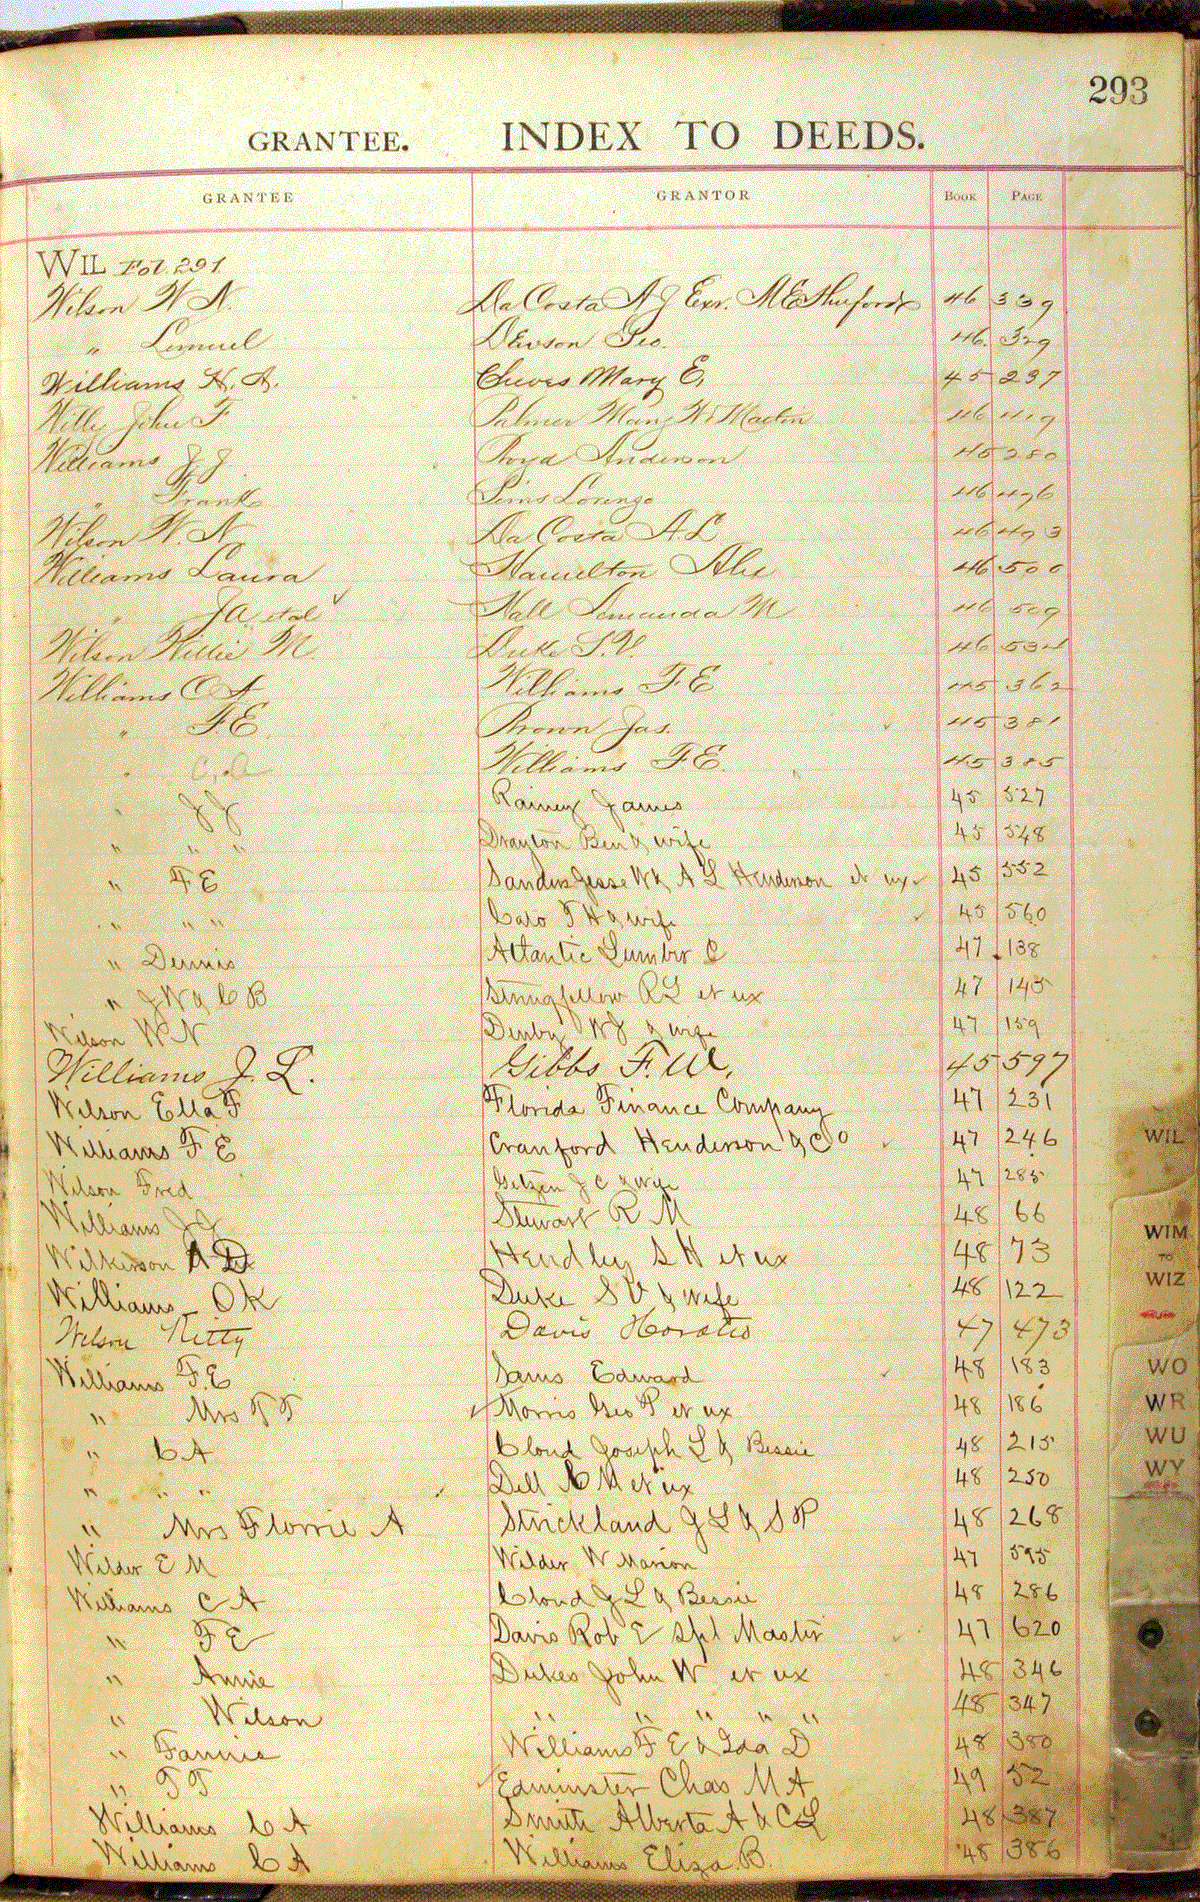 293
GRANTEE. INDEX TO DEEDS.
GRANTEE GRANTOR BOOK PAGE
WIL Fol. 291
Wilson W N. Da Costa A J Exr. M E Shuford 46 339
" Lemuel Dewson Geo. 46 329
Williams H. A. Cheves Mary E. 45 237
Willy John F. Palmer Mary W. Martin 46 419
Williams J J. Boyd Anderson 45 280
" Frank Sims Lorenzo 46 496
Wilson W. N. Da Costa A. L 46 493
Williams Laura Hamilton 46 500
" J A et al Hall M 46 509
Wilson Willie M. Duke S. V. 46 534
Williams C A Williams F E 45 362
" F. E Brown Jas. 45 381
" C. A Williams F E. 45 385
" J J Rainey James 45 527
" " " Drayton Ben & wife 45 548
" F E Sanders Jesse W & A L Henderson et ux 45 552
" " " Caro T H & wife 45 560
" Dennis Atlantic Lumber C 47 138
" J W & C B Stringfellow R L et ux 47 145
Wilson W N Denby W J & wife 47 159
Williams J. L. Gibbs F. W. 45 597
Wilson Ella F Florida Finance Company 47 231
Williams F E Cranford Henderson & Co 47 246
Wilson Fred Getzen J C & wife 47 285
Williams J J Stewart R M 48 66
Wilkerson A D Hendley S H et ux 48 73
Williams O K Duke S V & wife 48 122
Wilson Kitty Davis Horatio 47 473
Williams F. E Sams Edward 48 183
" Mrs T T Morris Geo P et ux 48 186
" C A Cloud Joseph L & Bessie 48 215
" " " Dell C M et ux 48 250
" Mrs Florrie A Strickland J L & S P 48 268
Wilder E M Wilder W Marion 47 595
Williams C A Cloud J L & Bessie 48 286
" F E Davis Rob E Spl Master 47 620
" Annie Dukes John W et ux 48 346
" Wilson " " " " " 48 347
" Fannie Williams F E & Ida D 48 380
" T T Edminster Chas M A 49 52
Williams C A Smith Alberta A & C L 48 387
Williams C A Williams Eliza B. 48 386
WIL
WIM
TO
WIZ
WO
WR
WU
WY